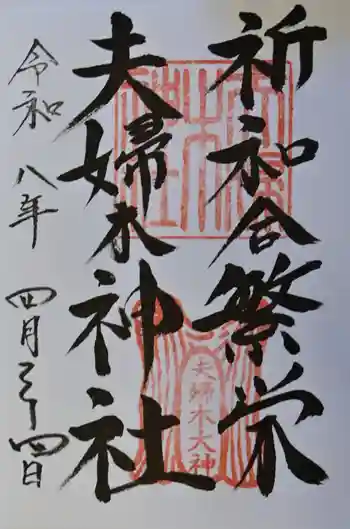 祈和合繁栄
夫婦木神社
令和八年 四月二十四日
夫婦木大神